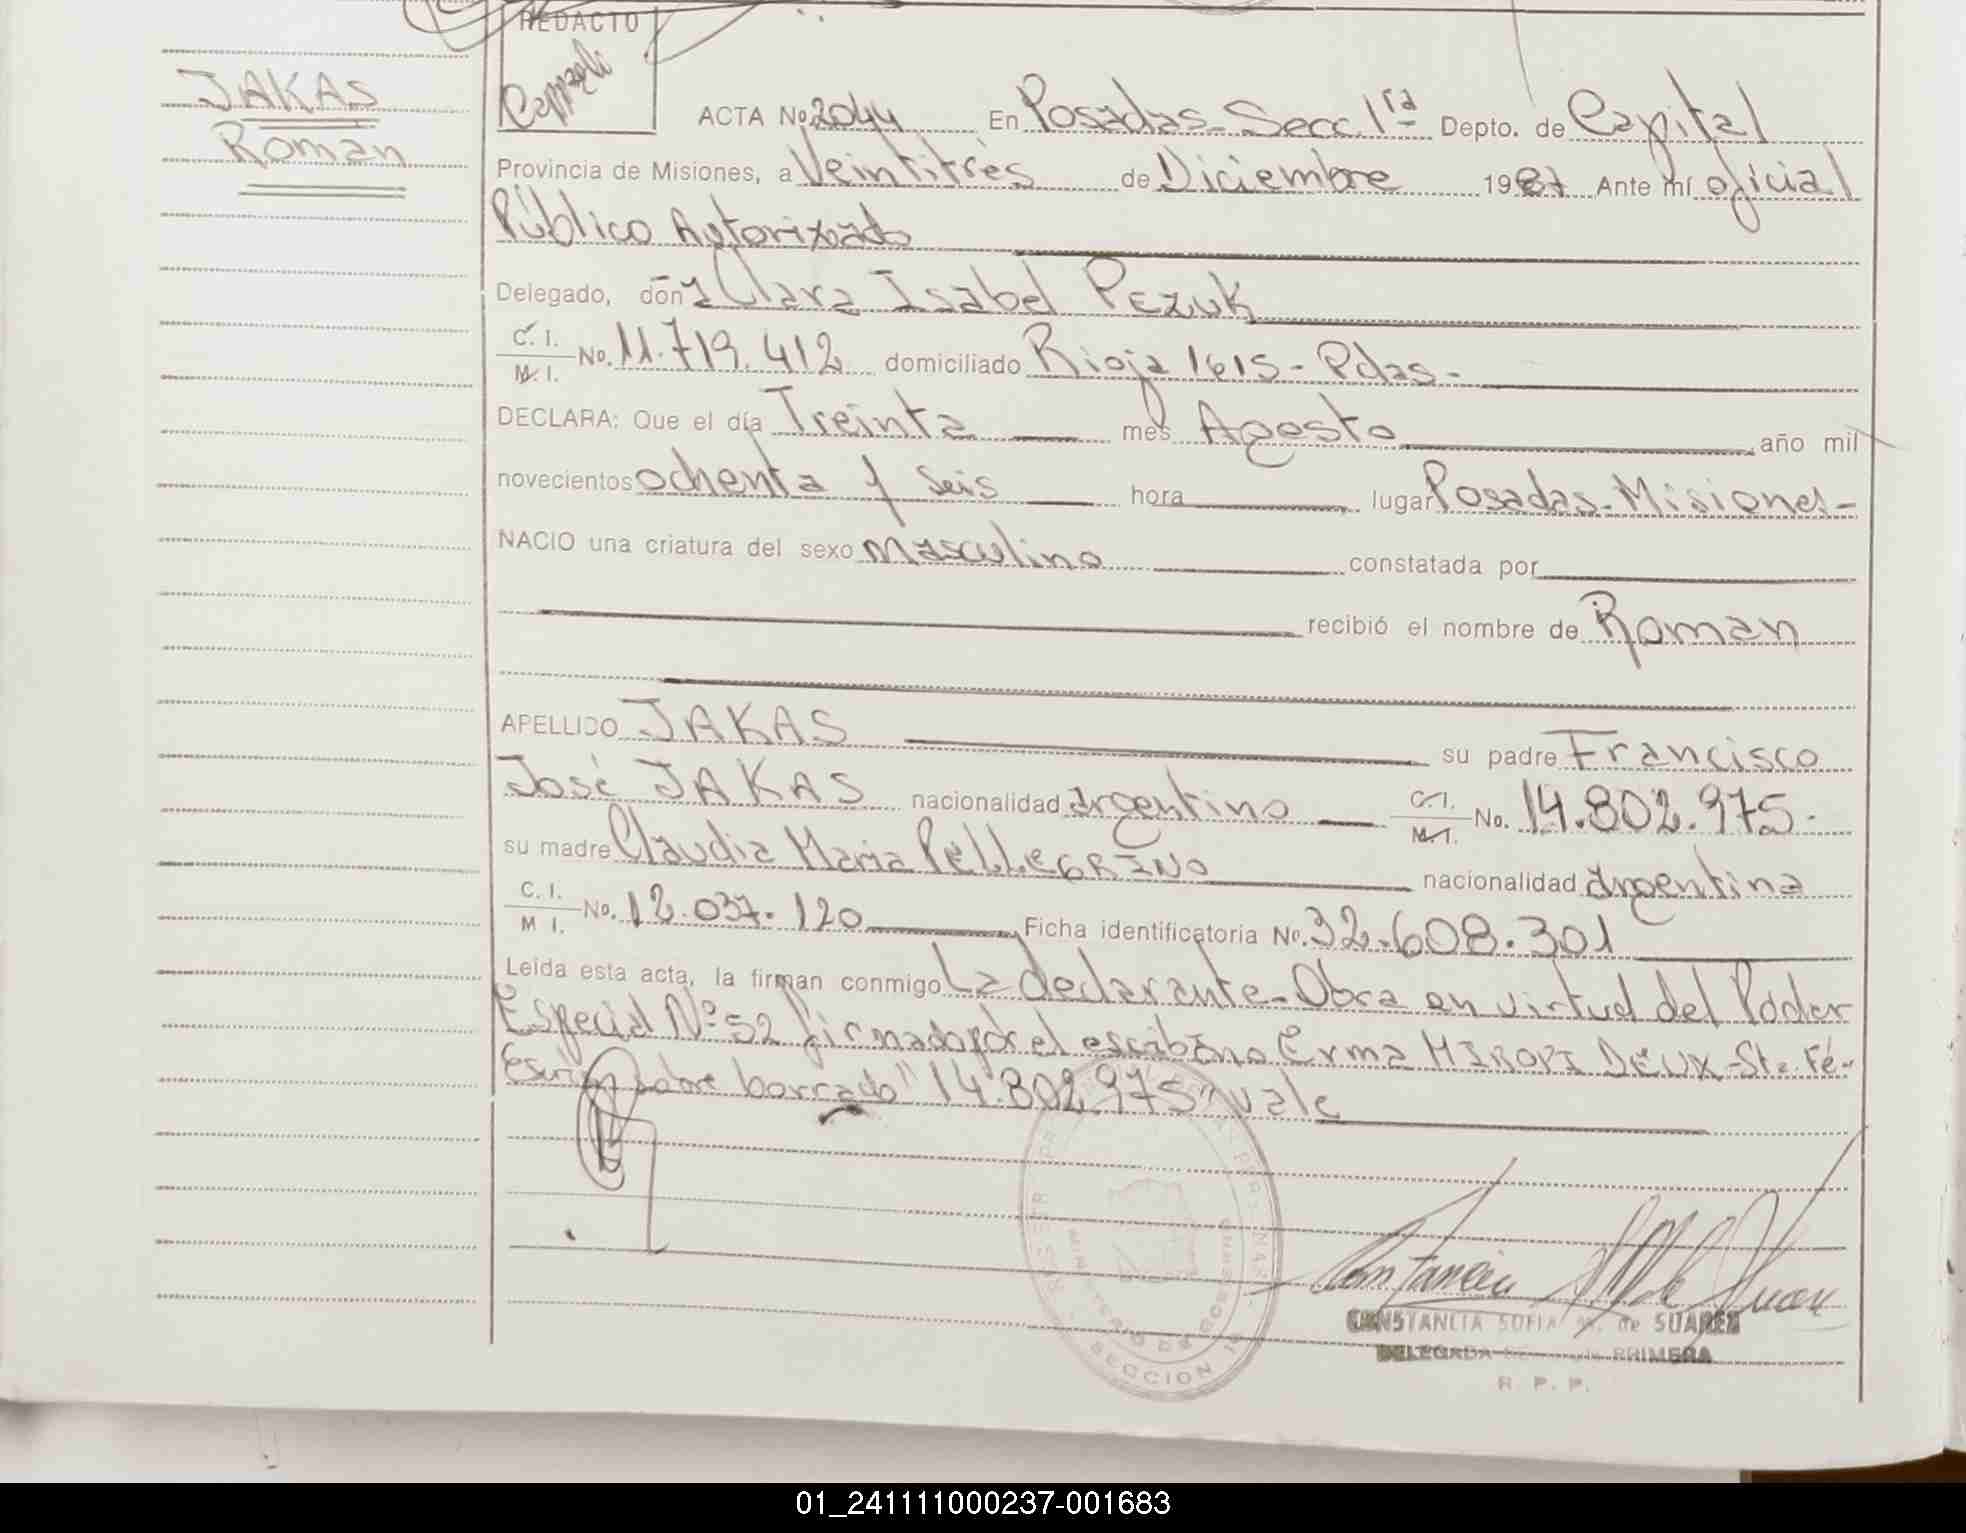 REDACTO
JAKAS
Roman
ACTA No. 2044 En Posadas-Secc. 1ra Depto. de Capital
Provincia de Misiones, a Veintitrés de Diciembre 1987 Ante mí oficial
Público Autorizado
Delegado, don a Clara Isabel Pezuk
C. I. M. I. No. 11.719.412 domiciliado Rioja 1615 - Pdas -
DECLARA: Que el día Treinta mes Agosto año mil
novecientos ochenta y seis hora lugar Posadas-Misiones-
NACIO una criatura del sexo masculino constatada por
recibió el nombre de Roman
APELLIDO JAKAS su padre Francisco
José JAKAS nacionalidad argentino C. I. M. I. No. 14.802.975.
su madre Claudia Maria PELLEGRINO nacionalidad argentina
C. I. M I. No. 12.037.120 Ficha identificatoria No. 32.608.301
Leída esta acta, la firman conmigo La declarante-Obra en virtud del Poder
Especial Nº 52 firmado por el escribano Erma DEUX-Sta. Fé-
sobre borrado "14.802.975" vale
MINISTERIO DE GOBIERNO
SECCION 1ª
CONSTANCIA SOFIA M. de SUAREZ
DELEGADA SECCION PRIMERA
R. P. P.
01_241111000237-001683